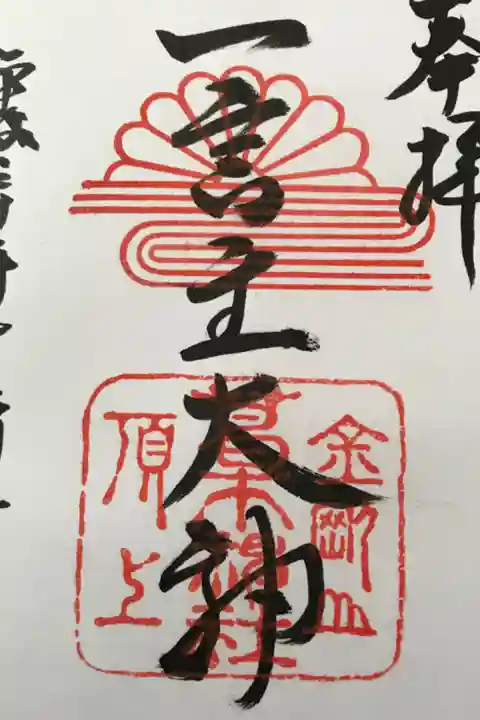 奉拝
一言主大神
金剛山
葛木神社
頂上